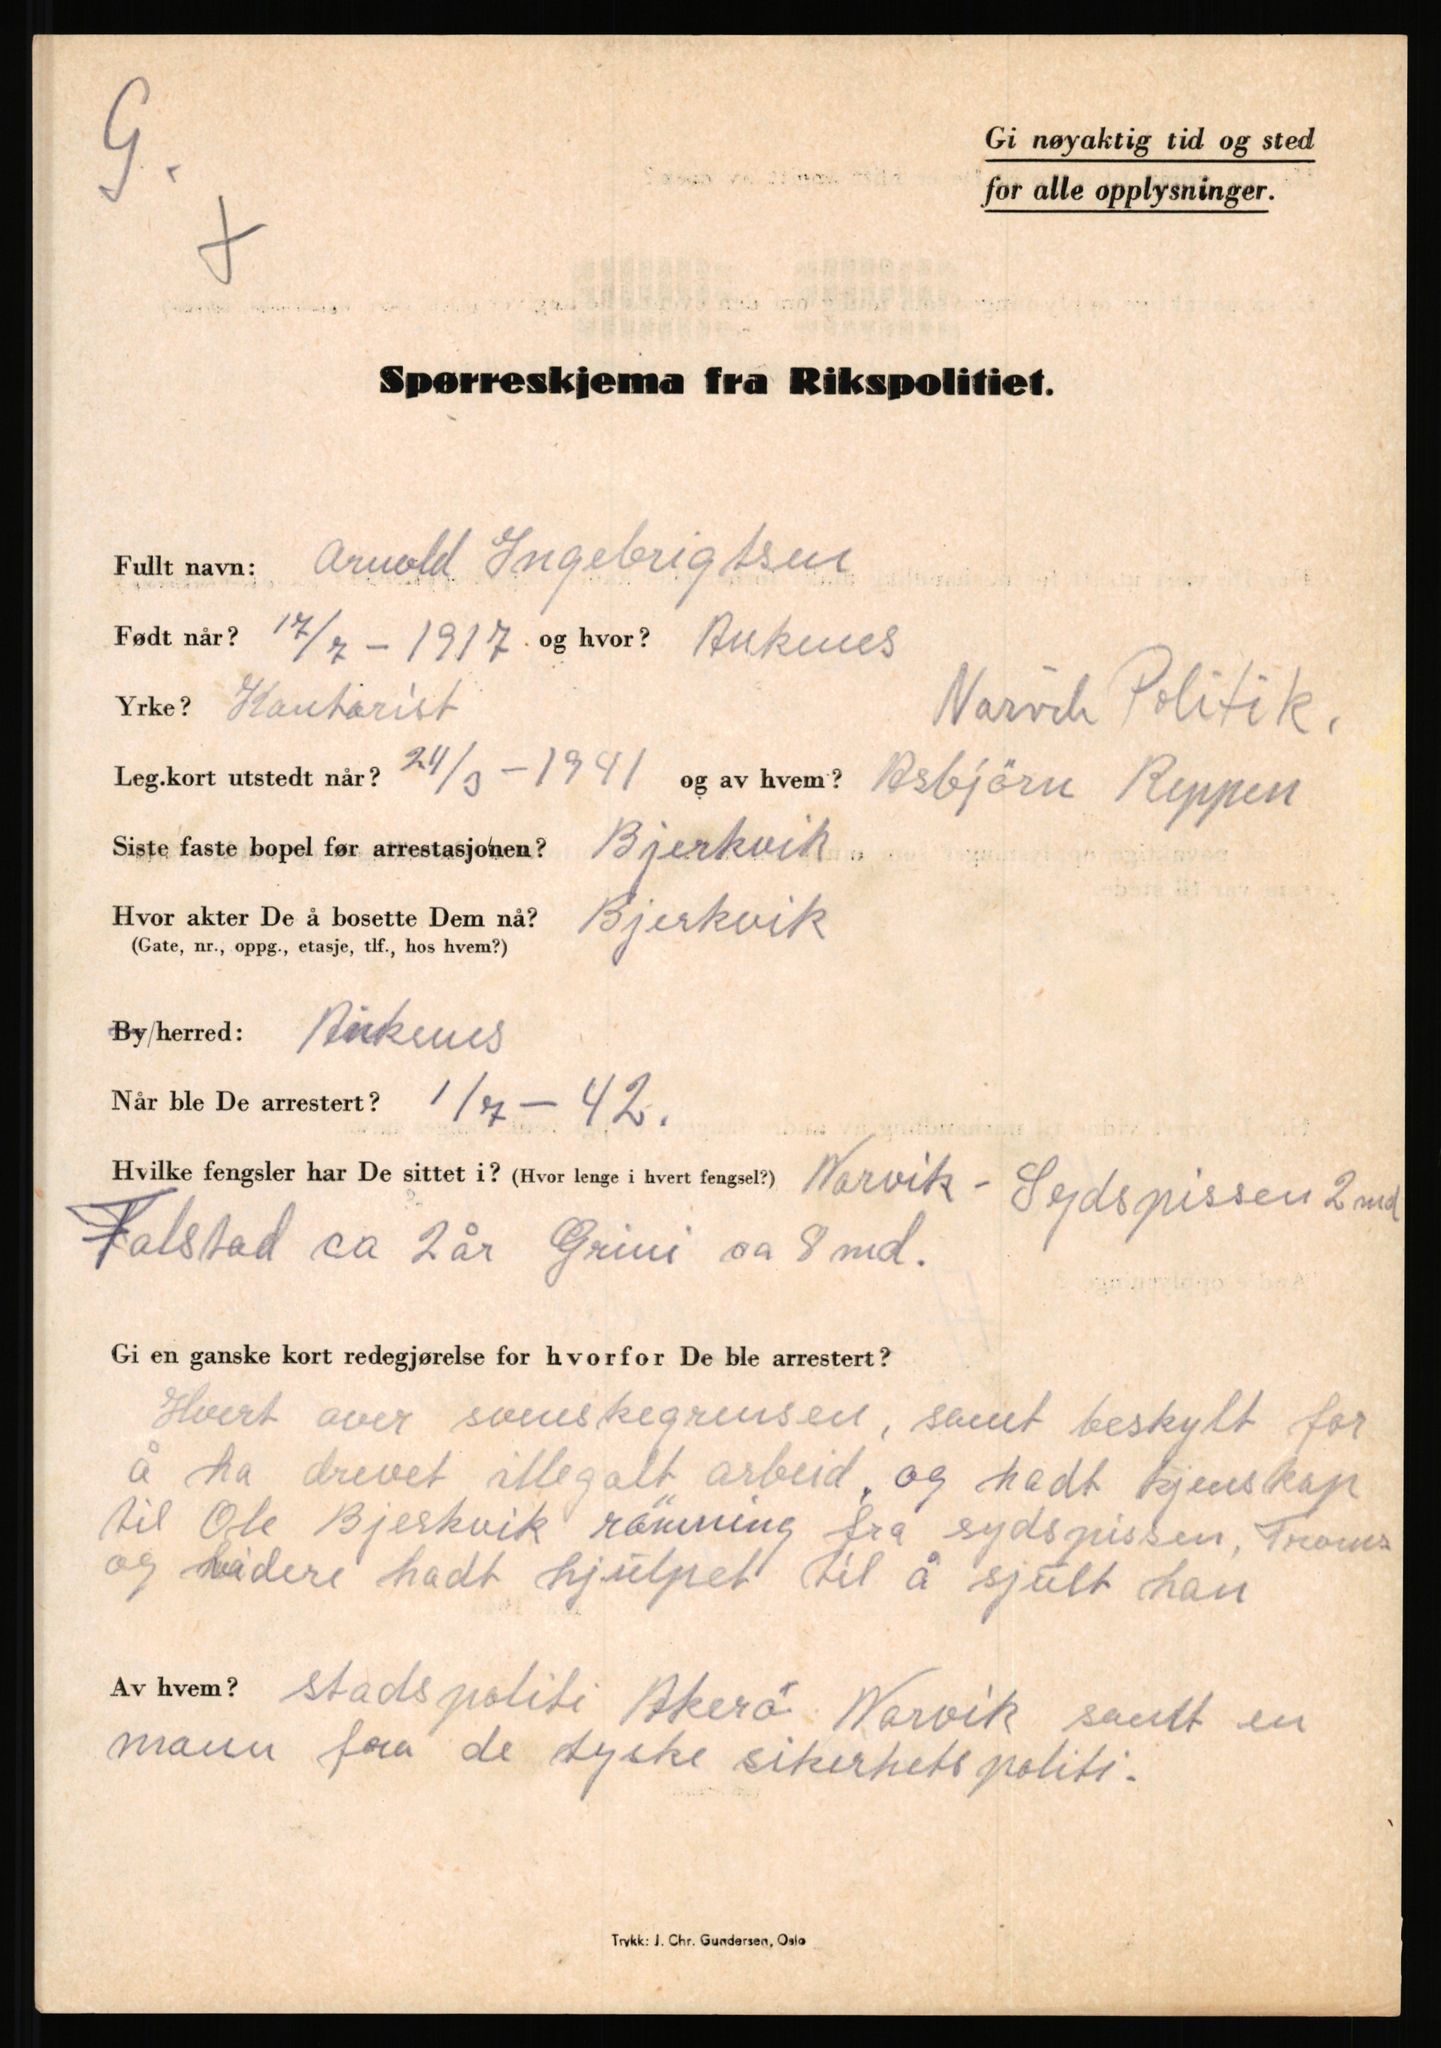 G.
Gi nøyaktig tid og sted
for alle opplysninger.
Spørreskjema fra Rikspolitiet.
Fullt navn: Arnold Ingebrigtsen
Født når? 17/7 - 1917 og hvor? Ankenes
Yrke? Kontorist
Narvik Politik.
Leg.kort utstedt når? 24/3 - 1941 og av hvem? Asbjörn Reppen
Siste faste bopel før arrestasjonen? Bjerkvik
Hvor akter De å bosette Dem nå? Bjerkvik
(Gate, nr., oppg., etasje, tlf., hos hvem?)
By/herred: Ankenes
Når ble De arrestert? 1/7 - 42.
Hvilke fengsler har De sittet i? (Hvor lenge i hvert fengsel?) Narvik - Sydspissen 2 md
Falstad ca 2 år Grini ca 8 md.
Gi en ganske kort redegjørelse for hvorfor De ble arrestert?
Hvert over svenskegrensen, samt beskylt for
å ha drevet illegalt arbeid, og hadt kjenskap
til Ole Bjerkvik römning fra sydspissen, Troms
og videre hadt hjulpet til å sjult han
Av hvem? stadspoliti Akerö Narvik samt en
mann fra de tyske sikerhetspoliti.
Trykk: J. Chr. Gundersen, Oslo